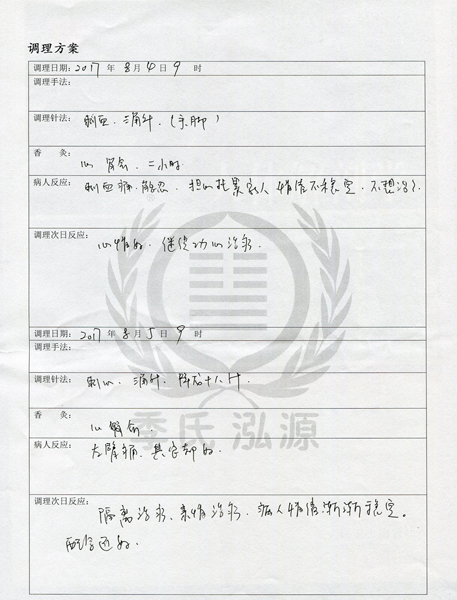 调理方案
调理日期: 2017 年 8 月 4 日 9 时
调理手法:
调理针法: 刺血、三通针、(手脚)
香 灸: 心 俞、二小时
病人反应: 刺血痛、能忍、担心拖累家人 情绪不稳定、不想治了
调理次日反应:
心情好、继续功心治疗.
调理日期: 2017 年 8 月 5 日 9 时
调理手法:
调理针法: 刺血、三通针、降龙十八针.
香 灸:
病人反应: 左臂痛、其它都好.
调理次日反应:
隔离治疗、亲情治疗、病人情绪渐渐稳定。
配合还好.
季氏 泓源